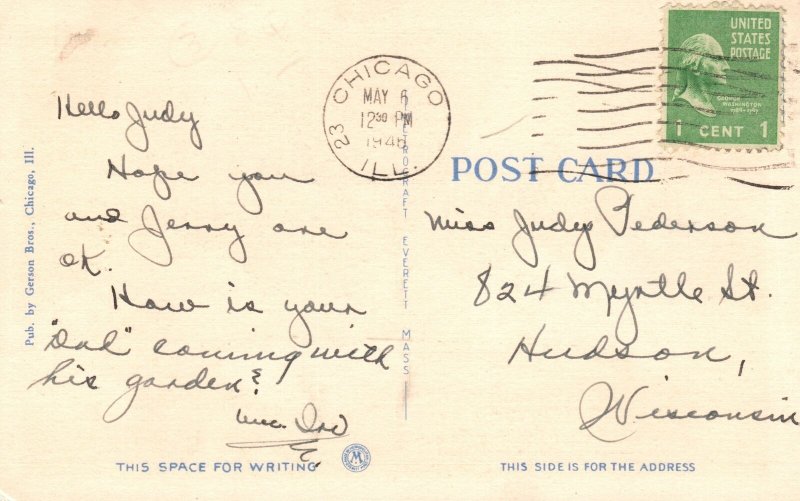 Hello Judy
Hope you
and Jerry are
OK.
How is your
"Dad" coming with
his garden?
Pub. by Gerson Bros., Chicago, Ill.
THIS SPACE FOR WRITING
CHICAGO
23
MAY 6
12 30 PM
ILL.
EVERETT MASS
UNITED
STATES
POSTAGE
GEORGE
WASHINGTON
1 CENT 1
POST CARD
Miss Judy Pederson
824 Myrtle St.
Hudson,
Wisconsin
THIS SIDE IS FOR THE ADDRESS